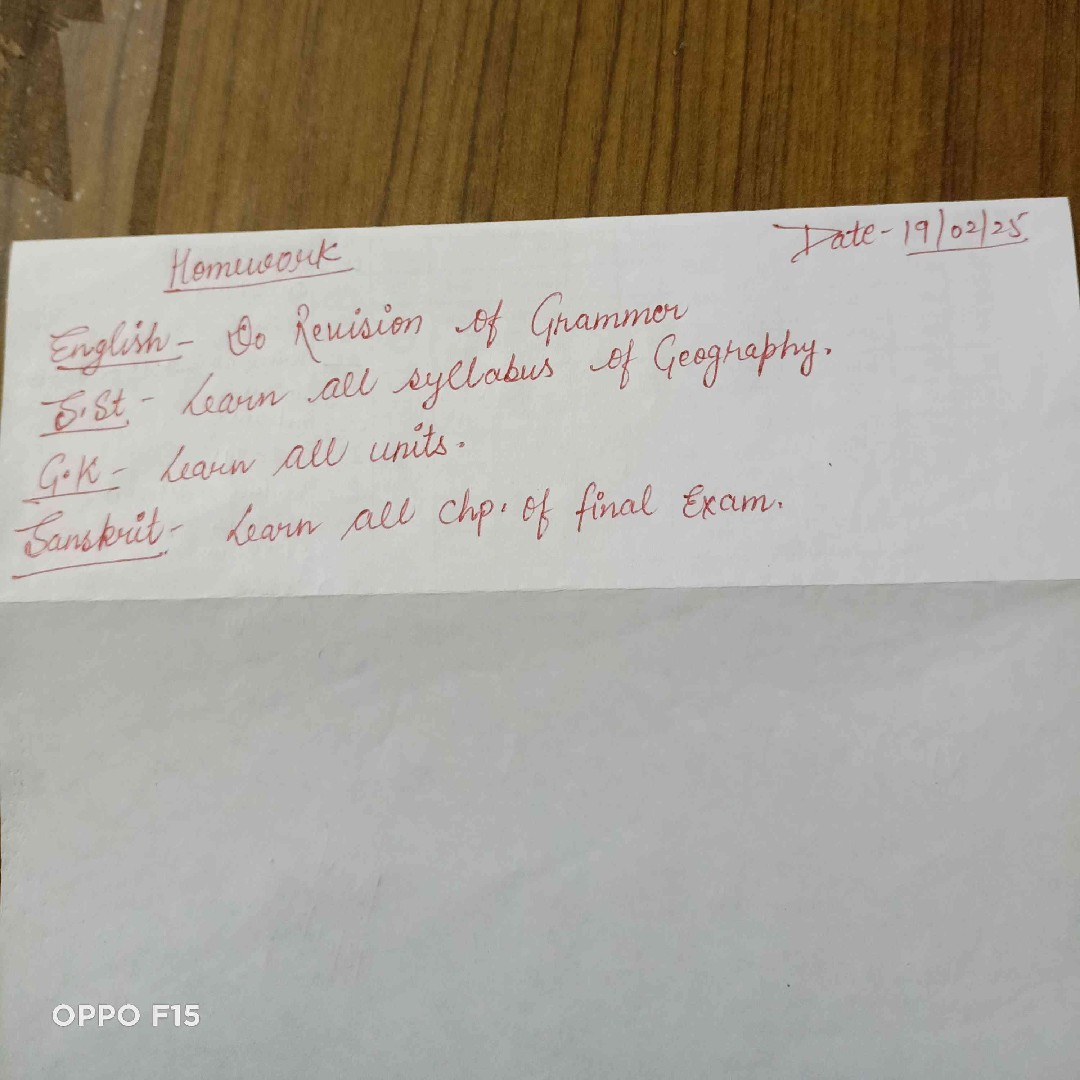 Homework
Date - 19/02/25
English - Do Revision of Grammer
S.St - Learn all syllabus of Geography.
G.K - Learn all units.
Sanskrit - Learn all chp. of final Exam.
OPPO F15